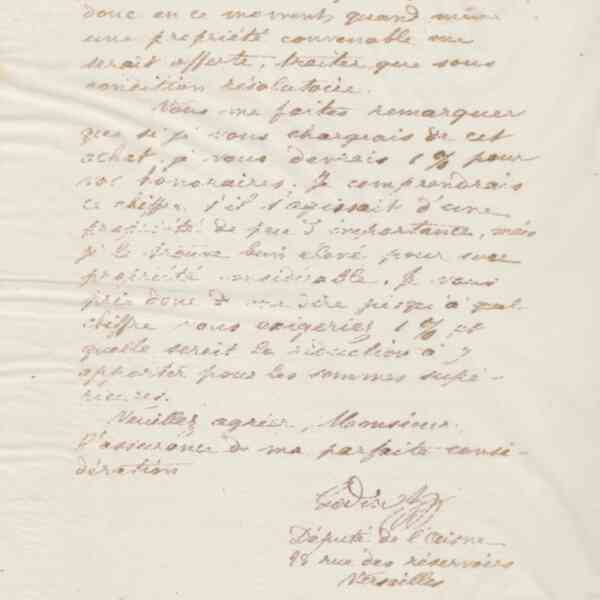 donc en ce moment, quand même
une propriété convenable me
serait offerte, traiter que sous
condition résolutoire.
Vous me faites remarquer
que si je vous chargeais de cet
achat, je vous devrais 1 % pour
vos honoraires. Je comprendrais
ce chiffre s'il s'agissait d'une
propriété de peu d'importante, mais
je le trouve bien élevé pour une
propriété considérable. Je vous
prie donc de me dire jusqu'à quel
chiffre vous exigeriez 1 % et
quelle serait la réduction à y
apporter pour les sommes supé-
rieures.
Veuillez agréer, Monsieur,
l'assurance de ma parfaite consi-
dération
Godin
Député de l'Aisne
28 rue des réservoirs
Versailles